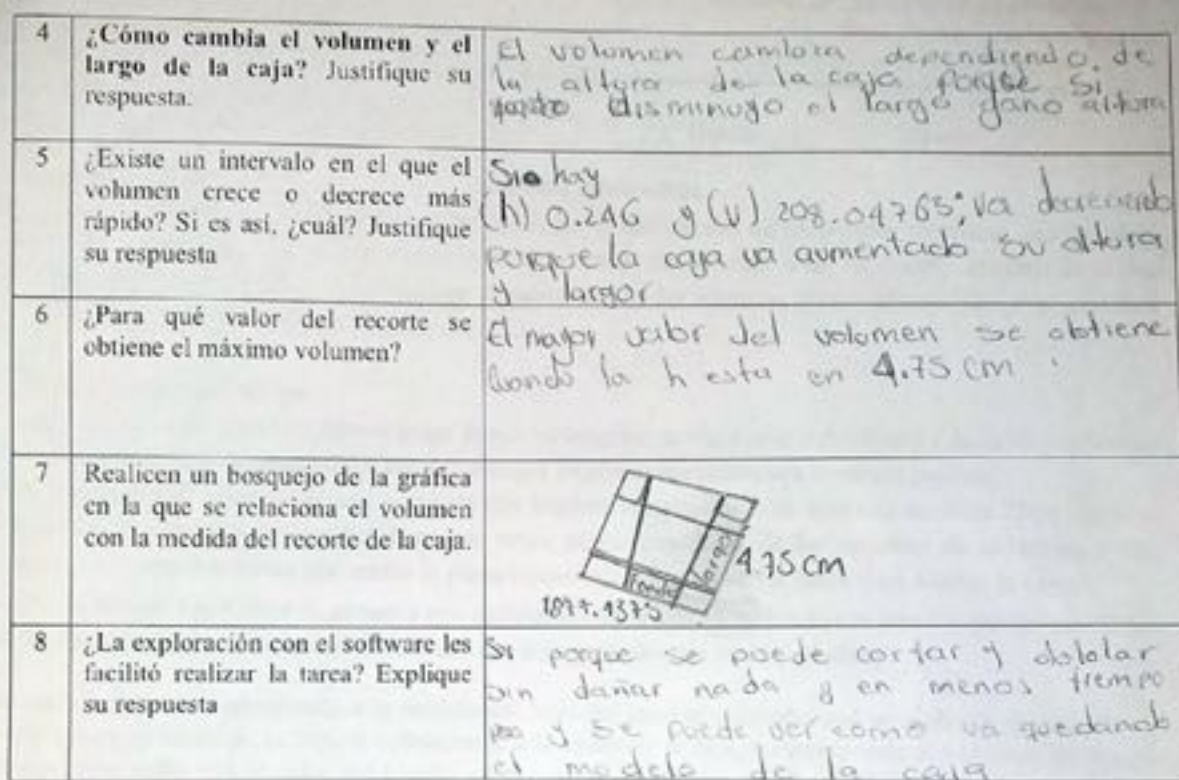 4
¿Cómo cambia el volumen y el
largo de la caja? Justifique su
respuesta.
El volumen cambia dependiendo. de
la altura de la caja porqse si
disminuyo el largo gano altura
5
¿Existe un intervalo en el que el
volumen crece o decrece más
rápido? Si es así, ¿cuál? Justifique
su respuesta
Si hay
(h) 0.246 y (v) 208.04765; va decreciendo
porque la caja va aumentado su altura
y largor
6
¿Para qué valor del recorte se
obtiene el máximo volumen?
El mayor valor del volumen se obtiene
cuando la h esta en 4.75 cm
7
Realicen un bosquejo de la gráfica
en la que se relaciona el volumen
con la medida del recorte de la caja.
largo
4.75 cm
8
¿La exploración con el software les
facilitó realizar la tarea? Explique
su respuesta
Si porque se puede cortar y doblar
sin dañar nada y en menos tiempo
y se puede ver como va quedando
el modelo de la caja